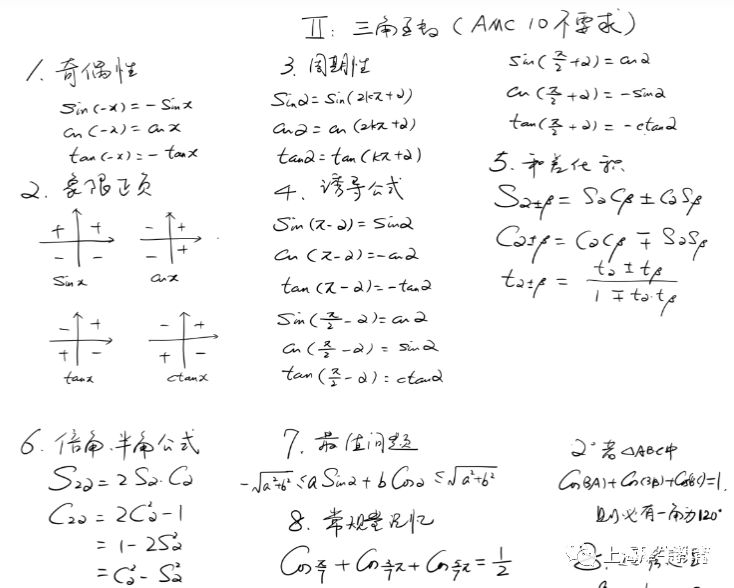 II: 三角函数 (AMC 10 不要求)
1. 奇偶性
sin(-x) = -sinx
cos(-x) = cosx
tan(-x) = -tanx
2. 象限正负
+ +
- -
sinx
- +
- +
cosx
- +
+ -
tanx
- +
+ -
ctanx
3. 周期性
sinα = sin(2kπ+α)
cosα = cos(2kπ+α)
tanα = tan(kπ+α)
4. 诱导公式
sin(π-α) = sinα
cos(π-α) = -cosα
tan(π-α) = -tanα
sin(π/2-α) = cosα
cos(π/2-α) = sinα
tan(π/2-α) = ctanα
sin(π/2+α) = cosα
cos(π/2+α) = -sinα
tan(π/2+α) = -ctanα
5. 和差化积
Sα±β = SαCβ ± CαSβ
Cα±β = CαCβ ∓ SαSβ
tα±β = (tα ± tβ)/(1 ∓ tα·tβ)
6. 倍角.半角公式
S2α = 2Sα·Cα
C2α = 2C²α - 1
= 1 - 2S²α
= C²α - S²α
7. 最值问题
-√a²+b² ≤ a Sinα + b Cosα ≤ √a²+b²
8. 常规量记忆
Cos π/7 + Cos 3/7π + Cos 5/7π = 1/2
2° 若△ABC中
Cos(3A)+Cos(3B)+Cos(3C)=1,
则必有一角为120°